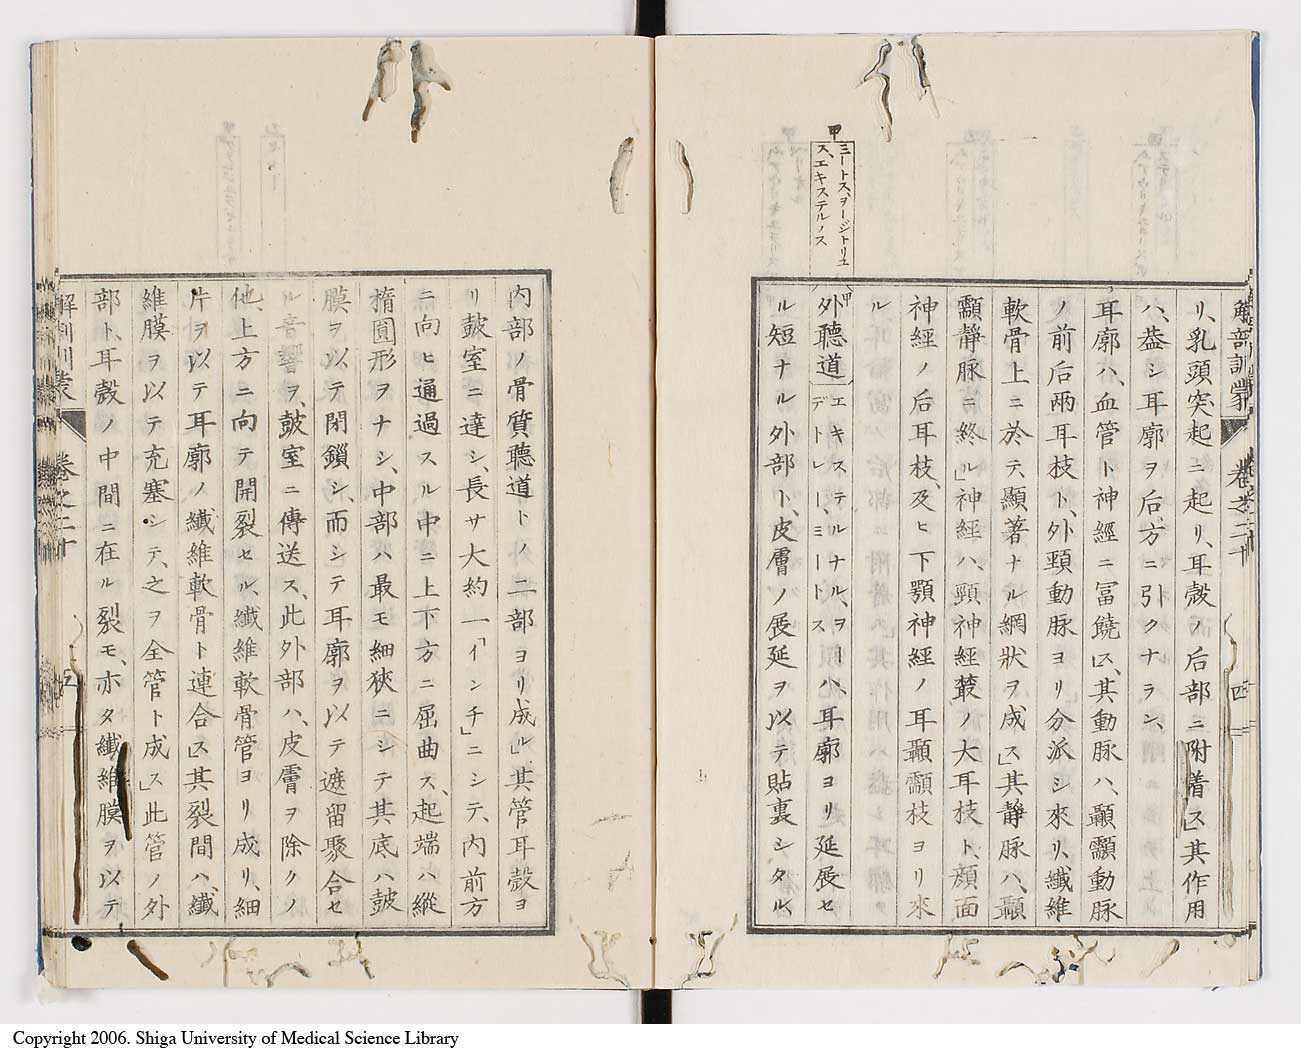 解剖訓蒙 卷之二十 四
リ、乳頭突起ニ起リ、耳殼ノ后部ニ附着ス」其作用
ハ、蓋シ耳廓ヲ后方ニ引クナラン、
耳廓ハ、血管ト神經ニ冨饒」ス、其動脉ハ、顳顬動脉
ノ前后兩耳枝ト、外頸動脉ヨリ分派シ來リ、纖維
軟骨上ニ於テ、顯著ナル網狀ヲ成ス」其靜脉ハ、顳
顬靜脉ニ終ル」神經ハ、頸神經叢ノ大耳枝ト、顔面
神經ノ后耳枝、及ヒ下顎神經ノ耳顳顬枝ヨリ來
ル
甲
ミートス、ヲージトリュ
ス、エキステルノス
甲
外聽道
エキステルナル、ヲー
デトレー、ミートス
ハ、耳廓ヨリ延展セ
ル短ナル外部ト、皮膚ノ展延ヲ以テ貼裏シタル、
内部ノ骨質聽道トノ二部ヨリ成ル」其管耳殼ヨ
リ鼓室ニ達シ、長サ大約一「インチ」ニシテ、内前方
ニ向ヒ通過スル中ニ上下方ニ屈曲ス、起端ハ縱
楕圓形ヲナシ、中部ハ最モ細狹ニシテ其底ハ鼓
膜ヲ以テ閉鎖シ、而シテ耳廓ヲ以テ遮留聚合セ
ル音響ヲ、鼓室ニ傳送ス、此外部ハ、皮膚ヲ除クノ
他、上方ニ向テ開裂セル、纖維軟骨管ヨリ成リ、細
片ヲ以テ耳廓ノ纖維軟骨ト連合」ス其裂間ハ、纖
維膜ヲ以テ充塞シテ、之ヲ全管ト成ス」此管ノ外
部ト、耳殼ノ中間ニ在ル裂モ、亦タ纖維膜ヲ以テ
解剖訓蒙 卷之二十
Copyright 2006. Shiga University of Medical Science Library